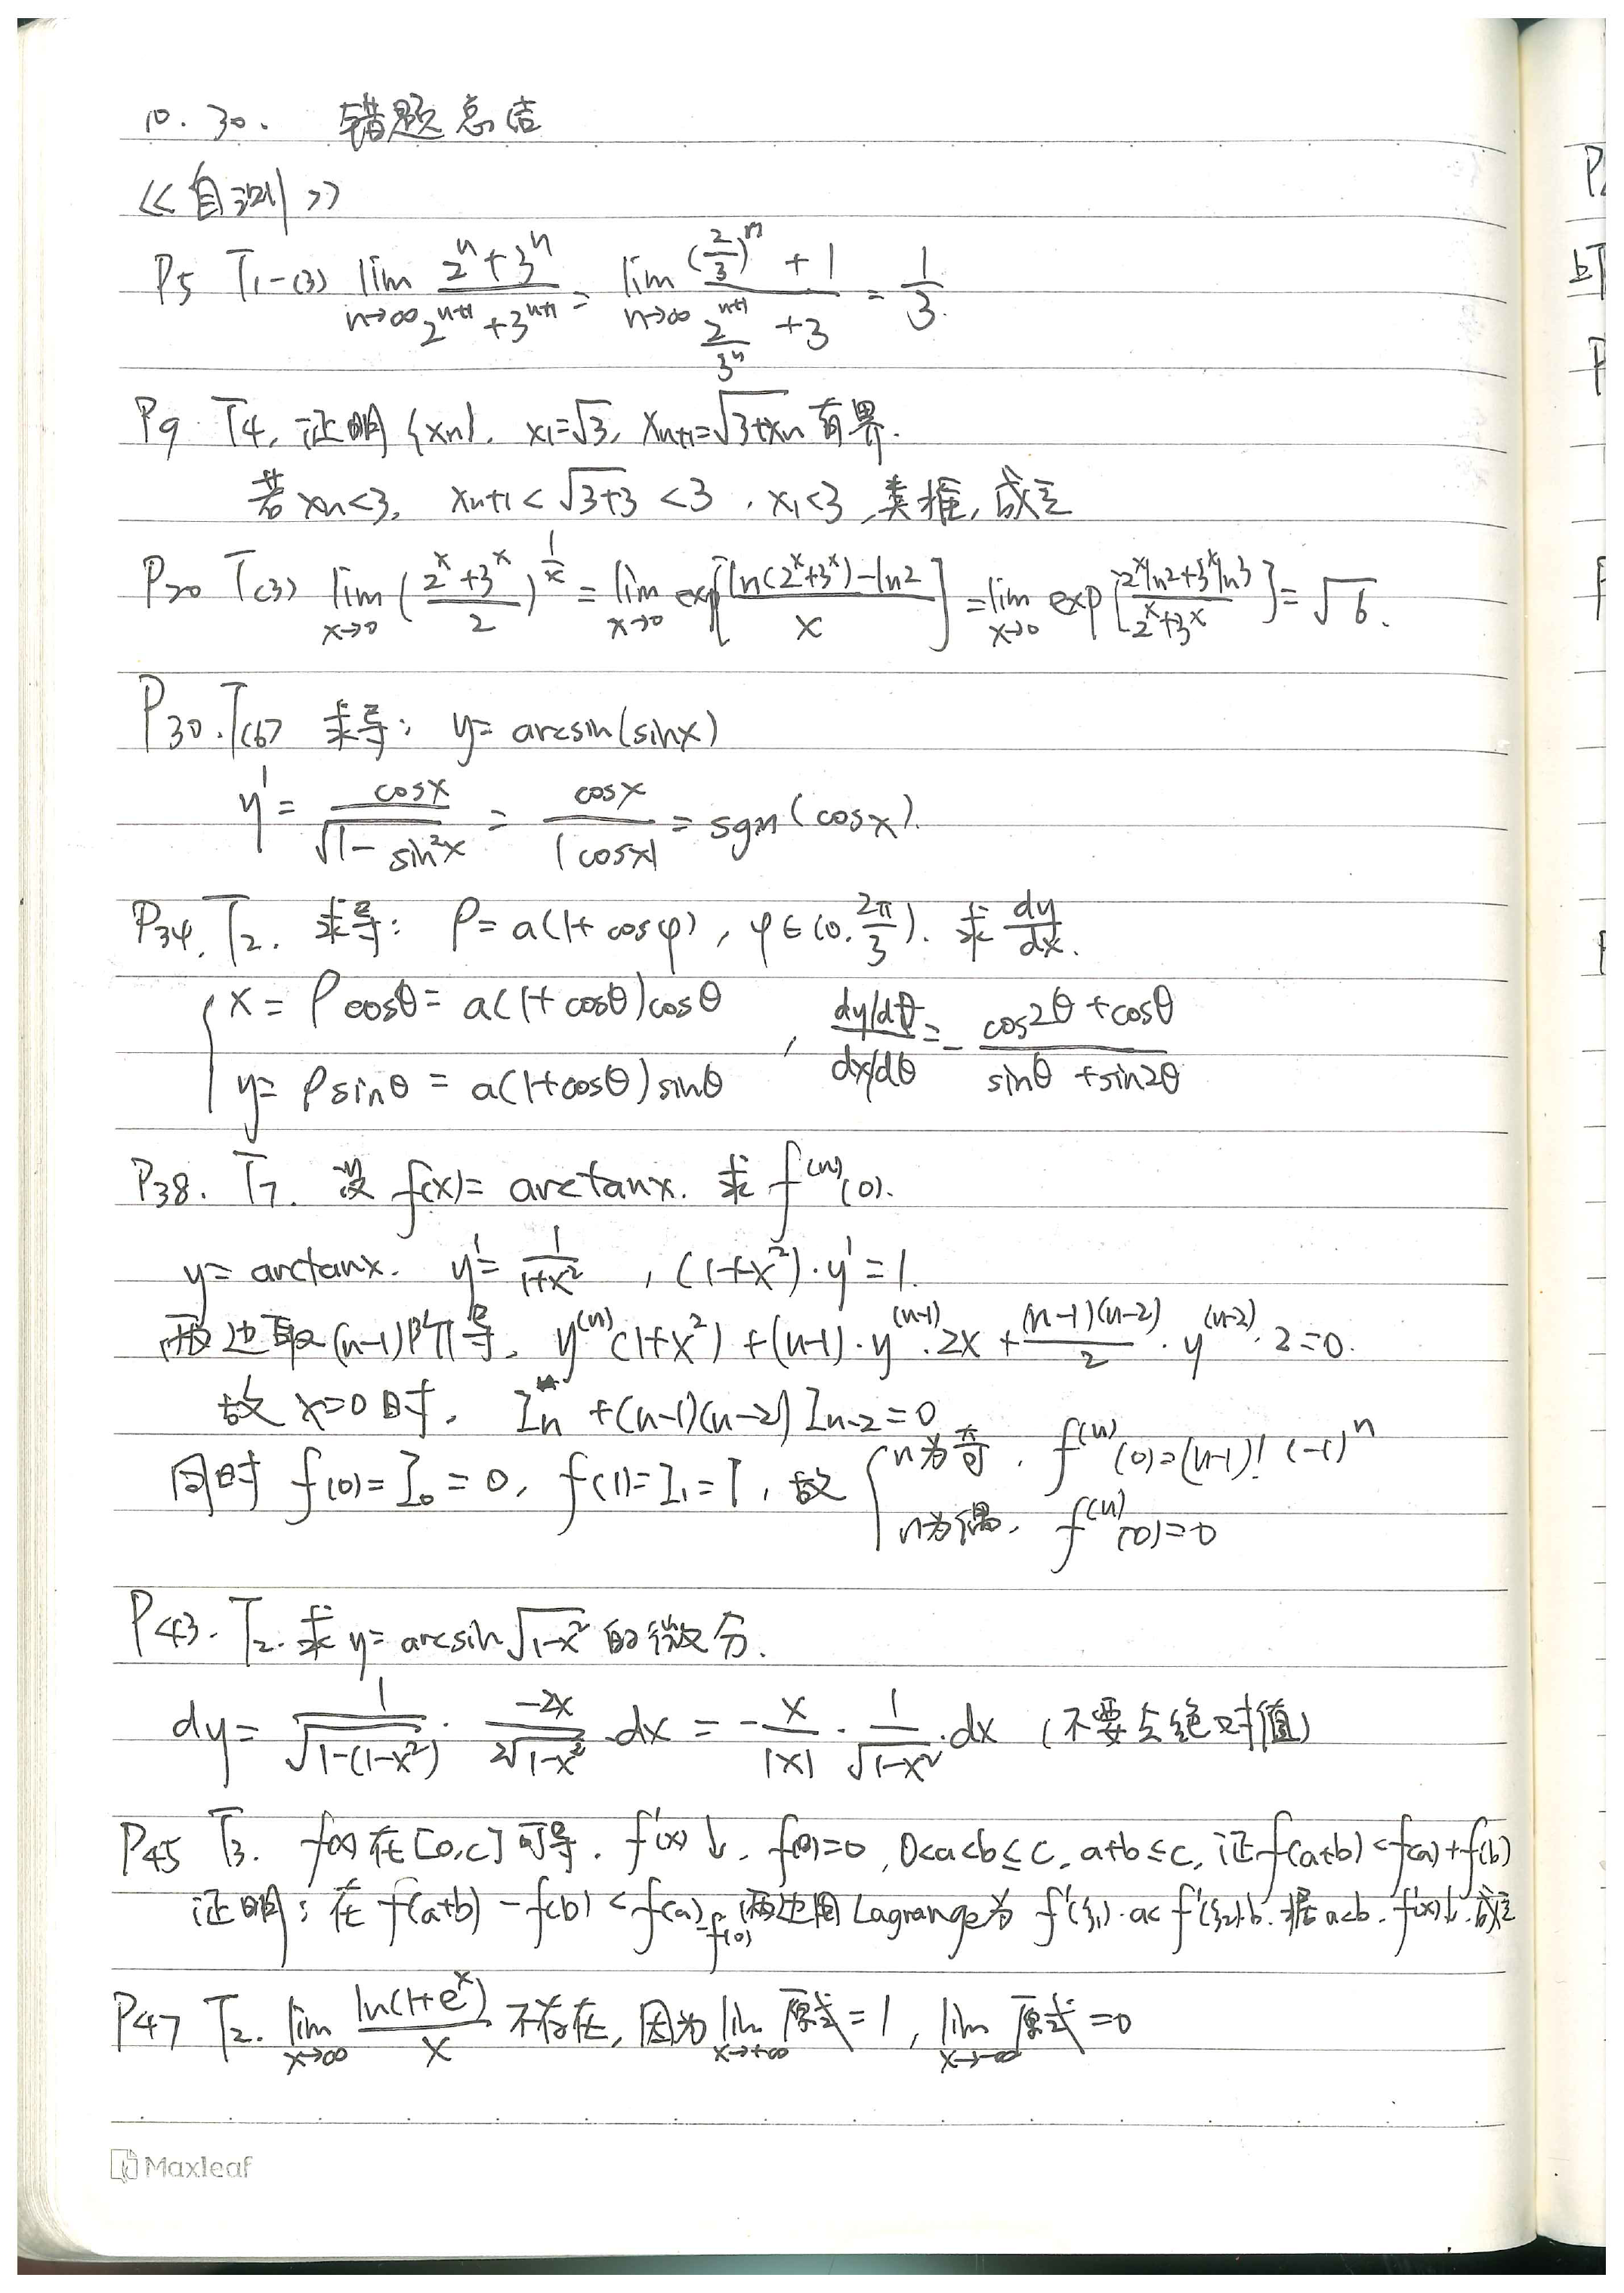 10.30. 错题总结
《自测》
P5 T1-(3) lim_{n→∞} (2^n+3^n)/(2^{n+1}+3^{n+1}) = lim_{n→∞} ((2/3)^n + 1)/(2^{n+1}/3^n + 3) = 1/3.
P9 T4. 证明{xn}. x1=√3, x_{n+1}=√(3+xn) 有界.
若xn<3, x_{n+1}<√(3+3)<3, x1<3, 类推, 成立
P20 T(3) lim_{x→0} ((2^x+3^x)/2)^{1/x} = lim_{x→0} exp[(ln(2^x+3^x)-ln2)/x] = lim_{x→0} exp[(2^x ln2+3^x ln3)/(2^x+3^x)] = √6.
P30. T(6) 求导: y=arcsin(sinx)
y' = cosx/√(1-sin²x) = cosx/|cosx| = sgn(cosx).
P34. T2. 求导: ρ=a(1+cosφ), φ∈(0, 2π/3). 求 dy/dx.
{ x = ρcosθ = a(1+cosθ)cosθ
y = ρsinθ = a(1+cosθ)sinθ , (dy/dθ)/(dx/dθ) = - (cos2θ+cosθ)/(sinθ+sin2θ)
P38. T7. 设 f(x)=arctanx. 求 f^{(n)}(0).
y=arctanx. y'=1/(1+x²), (1+x²)·y'=1.
两边取(n-1)阶导, y^{(n)}(1+x²)+(n-1)·y^{(n-1)}·2x+(n-1)(n-2)/2·y^{(n-2)}·2=0.
故 x=0时, In+(n-1)(n-2)I_{n-2}=0
同时 f(0)=I0=0, f(1)=I1=1, 故 { n为奇, f^{(n)}(0)=(n-1)!(-1)^n
n为偶, f^{(n)}(0)=0
P43. T2. 求 y=arcsin√(1-x²) 的微分.
dy = 1/√(1-(1-x²)) · -2x/(2√(1-x²)) ·dx = - x/|x| · 1/√(1-x²) ·dx (不要丢绝对值)
P45 T3. f(x)在[0,c]可导, f'(x)↓, f(0)=0, 0<a<b≤c, a+b≤c, 证f(a+b)<f(a)+f(b)
证明: 在 f(a+b)-f(b)<f(a)-f(0) 两边用Lagrange为 f'(ξ1)·a<f'(ξ2)·b. 据a<b, f'(x)↓, 成立
P47 T2. lim_{x→∞} ln(1+e^x)/x 不存在, 因为 lim_{x→+∞} 原式=1, lim_{x→-∞} 原式=0
Maxleaf